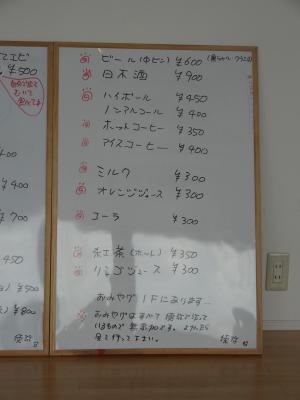 エビ
¥500
¥400
¥700
450
¥500
¥800
ビール(中ビン) ¥600
日本酒 ¥900
ハイボール ¥450
ノンアルコール ¥400
ホットコーヒー ¥350
アイスコーヒー ¥400
ミルク ¥300
オレンジジュース ¥300
コーラ ¥300
紅茶(ホット) ¥350
リンゴジュース ¥300
おみやげ 1Fにあります...
おみやげはすべて
いるもので無添加です。よかったら
見て行って下さい。